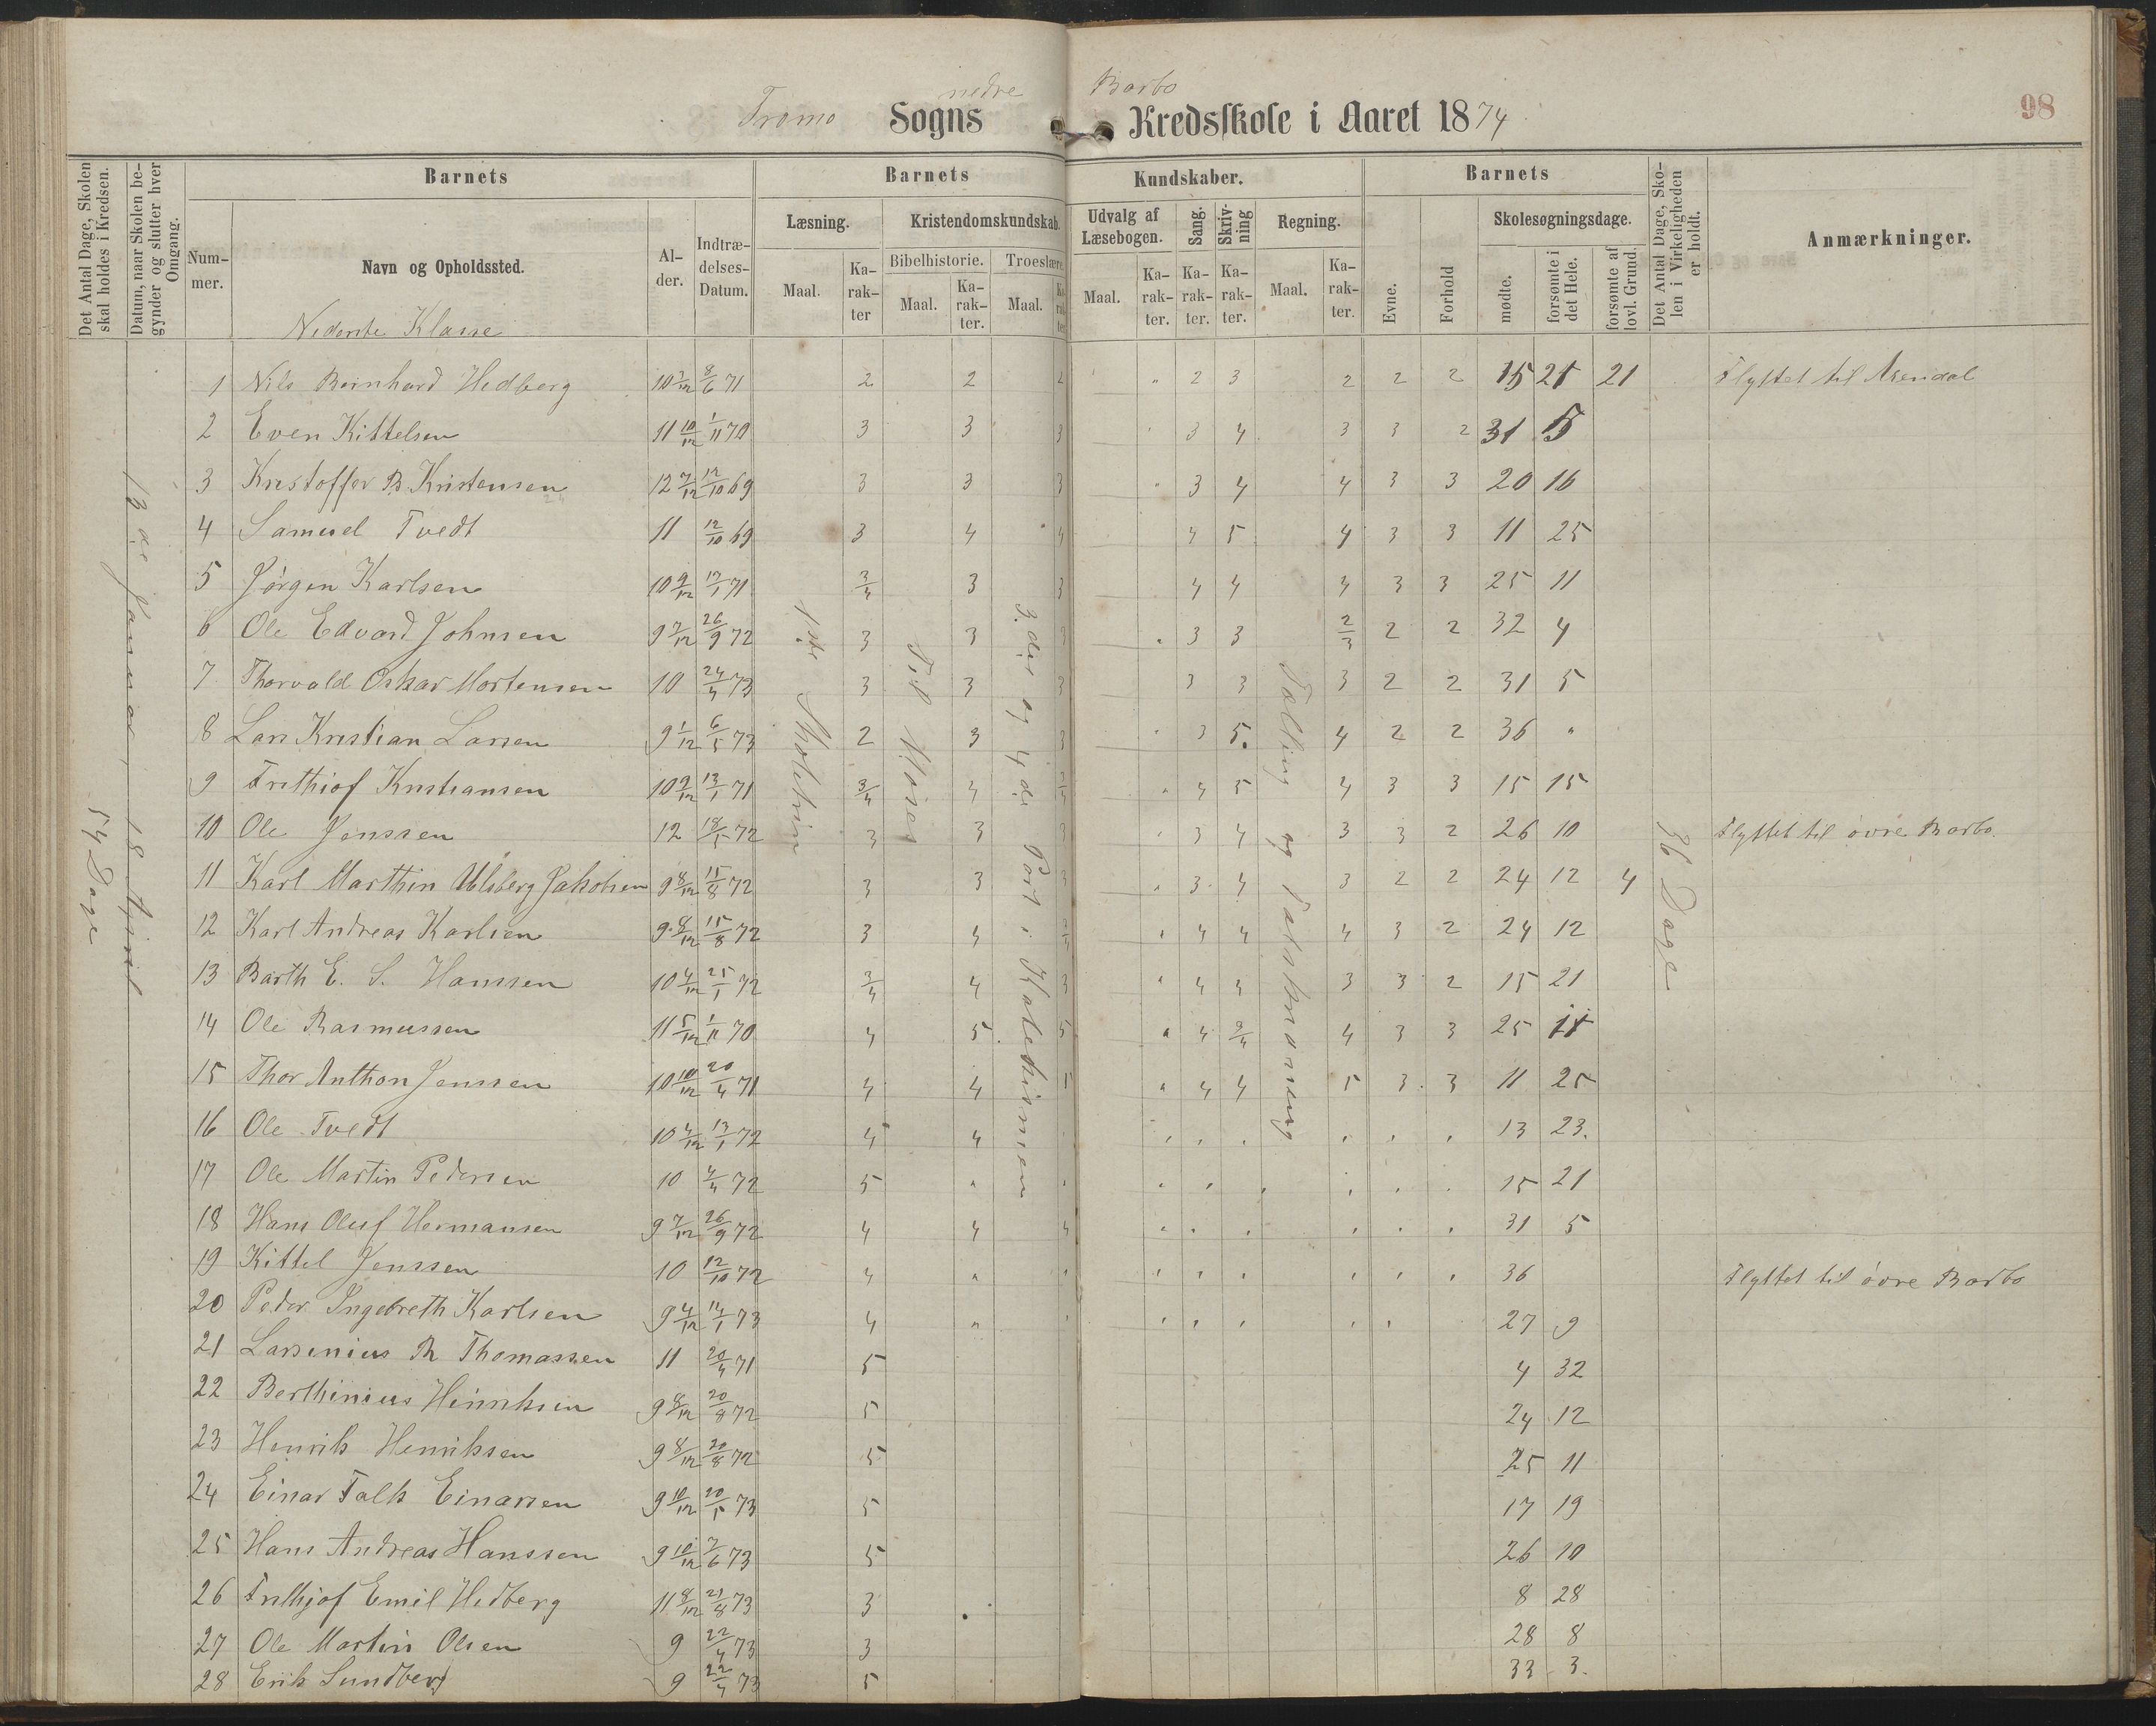 nedre Barbo
Tromø Sogns Kredsskole i Aaret 1874
98
Det Antal Dage, Skolen skal holdes i Kredsen.
Datum, naar Skolen begynder og slutter hver Omgang.
Barnets
Barnets Kundskaber.
Barnets
Det Antal Dage, Skolen i Virkeligheden er holdt.
Anmærkninger.
Nummer.
Navn og Opholdssted.
Alder.
Indtrædelses-Datum.
Læsning.
Kristendomskundskab.
Udvalg af Læsebogen.
Sang.
Skrivning
Regning.
Evne.
Forhold
Skolesøgningsdage.
Bibelhistorie.
Troeslære.
Maal. Karakter Maal. Karakter. Maal. Karakter. Maal. Karakter. Karakter. Karakter. Maal. Karakter.
mødte. forsømte i det Hele. forsømte af lovl. Grund.
Nederste Klasse
1 Nils Bernhard Hedberg 10 7/12 8/6 71 2 2 2 " 2 3 2 2 2 15 21 21 Flyttet til Arendal
2 Even Kittelsen 11 10/12 1/11 70 3 3 3 " 3 4 3 3 2 31 5
3 Kristoffer B. Kristensen 12 7/12 12/10 69 3 3 3 " 3 4 4 3 3 20 16
4 Samuel Tvedt 11 12/10 69 3 4 4 4 5 4 3 3 11 25
5 Jørgen Karlsen 10 9/12 17/1 71 3/4 3 3 4 4 4 3 3 25 11
6 Ole Edvard Johnsen 9 7/12 26/9 72 3 3 3 " 3 3 2/3 2 2 32 4
7 Thorvald Oskar Mortensen 10 24/4 73 3 3 3 3 3 3 2 2 31 5
8 Lars Kristian Larsen 9 1/12 6/5 73 2 3 3 " 3 5. 4 2 2 36 "
9 Frithiof Kristiansen 10 9/12 13/1 71 3/4 4 3/4 " 4 5 4 3 3 15 15
10 Ole Jenssen 12 18/5 72 3 3 3 " 3 4 3 3 2 26 10 Flyttet til øvre Barbo.
11 Karl Marthin Ulsberg Jakobsen 9 8/12 15/8 72 3 3 3 " 3 4 3 2 2 24 12 4
12 Karl Andreas Karlsen 9 8/12 15/8 72 3 4 3/4 " 4 4 4 3 2 24 12
13 Barth E. S. Hanssen 10 4/12 25/1 72 3/4 4 3 " 4 4 3 3 2 15 21
14 Ole Rasmussen 11 5/12 1/11 70 4 5 5 " 4 3/4 4 3 3 25 11
15 Thor Anthon Jenssen 10 10/12 20/4 71 4 4 5 " 4 4 5 3 3 11 25
16 Ole Tvedt 10 4/12 13/1 72 4 4 " " " " " " " 13 23.
17 Ole Martin Pedersen 10 4/4 72 5 " " " " " " " " 15 21
18 Hans Oluf Hermansen 9 7/12 26/9 72 4 4 4 " " " " " " 31 5
19 Kittel Jenssen 10 12/10 72 4 " " " " " " " " 36 Flyttet til øvre Barbo
20 Peder Ingebreth Karlsen 9 4/12 14/1 73 4 " " " " " " " 27 9
21 Larsenius R Thomassen 11 20/4 71 5 4 32
22 Berthinius Heinriksen 9 8/12 20/8 72 5 24 12
23 Henrik Henriksen 9 8/12 20/8 72 5 25 11
24 Einar Falk Einarsen 9 10/12 20/5 73 5 17 19
25 Hans Andreas Hanssen 9 10/12 7/6 73 5 26 10
26 Frithjof Emil Hedberg 11 8/12 21/8 73 3 8 28
27 Ole Martin Olsen 9 22/4 73 3 28 8
28 Erik Sundberg 9 22/4 73 5 33 3.
54 Dage
13de Januar, 18 April
1ste Skoletrin
Til Moses
3die og 4de Part i Katekismen
Tælling og Talskrivning
36 Dage